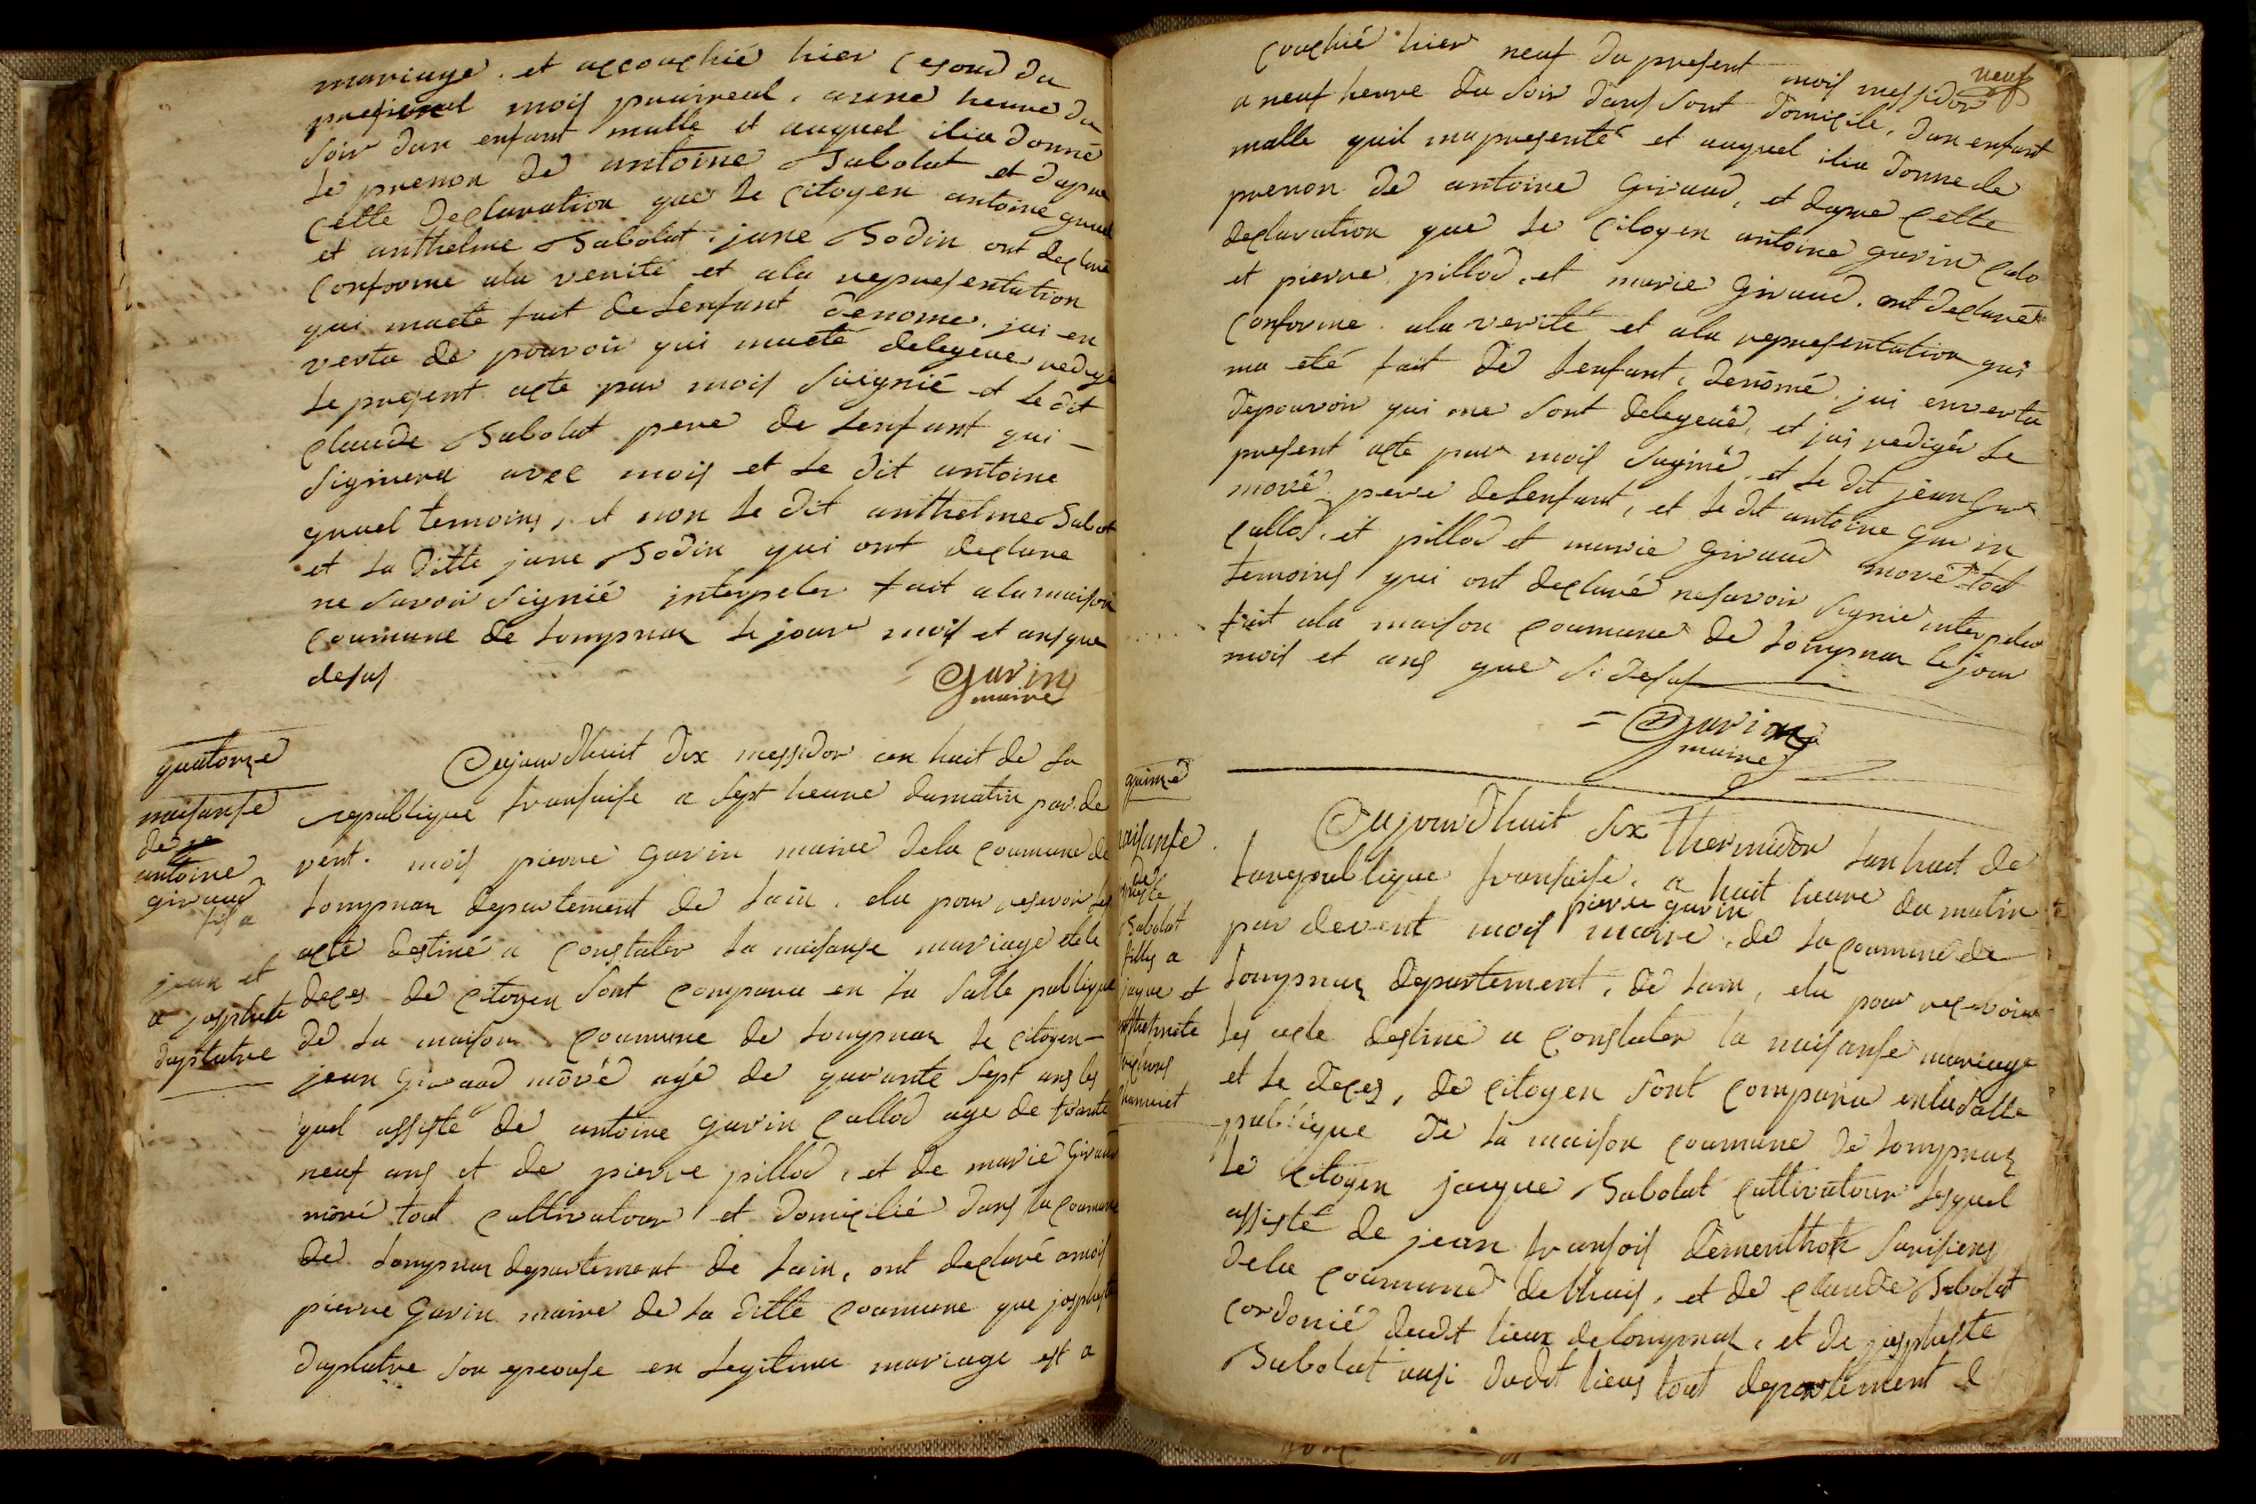 mariage. et accouchié hier segond du
present mois prairieal. a une heure du
soir dun enfant malle et auquel il ia donné
le prenon de antoine Sabolat et dapre
cette declaration que le citoyen antoine gruel
et anthelme Sabolat. jane Bodin ont declaré
conforme ala verité et ala representation
qui maeté fait de lenfant denome. jai en
vertu de pouvoir qui maeté delegeue redigé
le present acte par mois suignié et le dit
claude Sabolat pere de lenfant qui
signera avec mois et le dit antoine
gruel temoins, et non le dit anthelme Sabolat
et la ditte jane Bodin qui ont declare
ne savoir signié interpeler fait ala maison
coumune de lompnaz le jour mois et ans que
desus
= gavin
maire
quatorze
naisanse
de
antoine
giraud
fis a
jean et
a josphete
duplatre
Aujourdhuit dix messidor an huit de la
republique fransaise a sept heure dumatin par de
vent. mois pierre gavin maire dela coumune de
lompnaz departement de lain. elu pour reservoir les
acte destiné a constater la naisanse mariage et le
deces de citoyen sont comparu en la salle publique
de la maison coumune de lompnaz le citoyen
jean giraud moré agé de quarante sept ans les
quel assisté de antoine gavin callod age de trante
neuf ans et de pierre pillod, et de marie giraud
moré tout cultivatour et domicilié dans la coumune
de lompnaz departement de lain, ont declaré amois
pierre gavin maire de la ditte coumune que josphete
duplatre son epeouse en legitime mariage est a
neuf
couchié hier neuf du present mois messidor
a neuf heure du soir dans sont domicile, dun enfant
malle quil ma presenté et auquel il ia donne le
prenon de antoine giraud, et dapre cette
declaration que le citoyen antoine gavin calo
et pierre pillod, et marie giraud. ont declaré
conforme. ala verité et ala representation qui
ma eté fait de lenfant, denomé. jai en vertu
depouvoir qui me sont delegeué, et jai redigér le
present acte par mois suginé, et le dit jean gir
moré pere de lenfant, et le dit antoine gavin
callod, et pillod et marie giraud moré tout
temoins qui ont declaré ne savoir signie interpeler
fait ala maison coumune de lompnaz le jour
mois et ans que si desus
= gavin
maire
quinzé
naisanse
josphete
Sabolat
filles a
jaque et
Aujourdhuit six thermidor lan huit de
la republique fransaise. a huit heure du matin
pierre gavin
par devent mois maire. de la coumune de
lompnaz departement, de lain, elu pour recevoir
les acte destiné a constater la naisanse mariage
et le deces, de citoyen sont comparu en la salle
publique de la maison coumune de lompnaz
le citoyen jacque Sabolat cultivatour lesquel
assisté de jean fransois dementhon
dela coumune de lhuis, et de claude Sabolat
cordonié dudit lieux de lompnaz, et de josphete
Sabolat ausi dudit lieus tout departement d